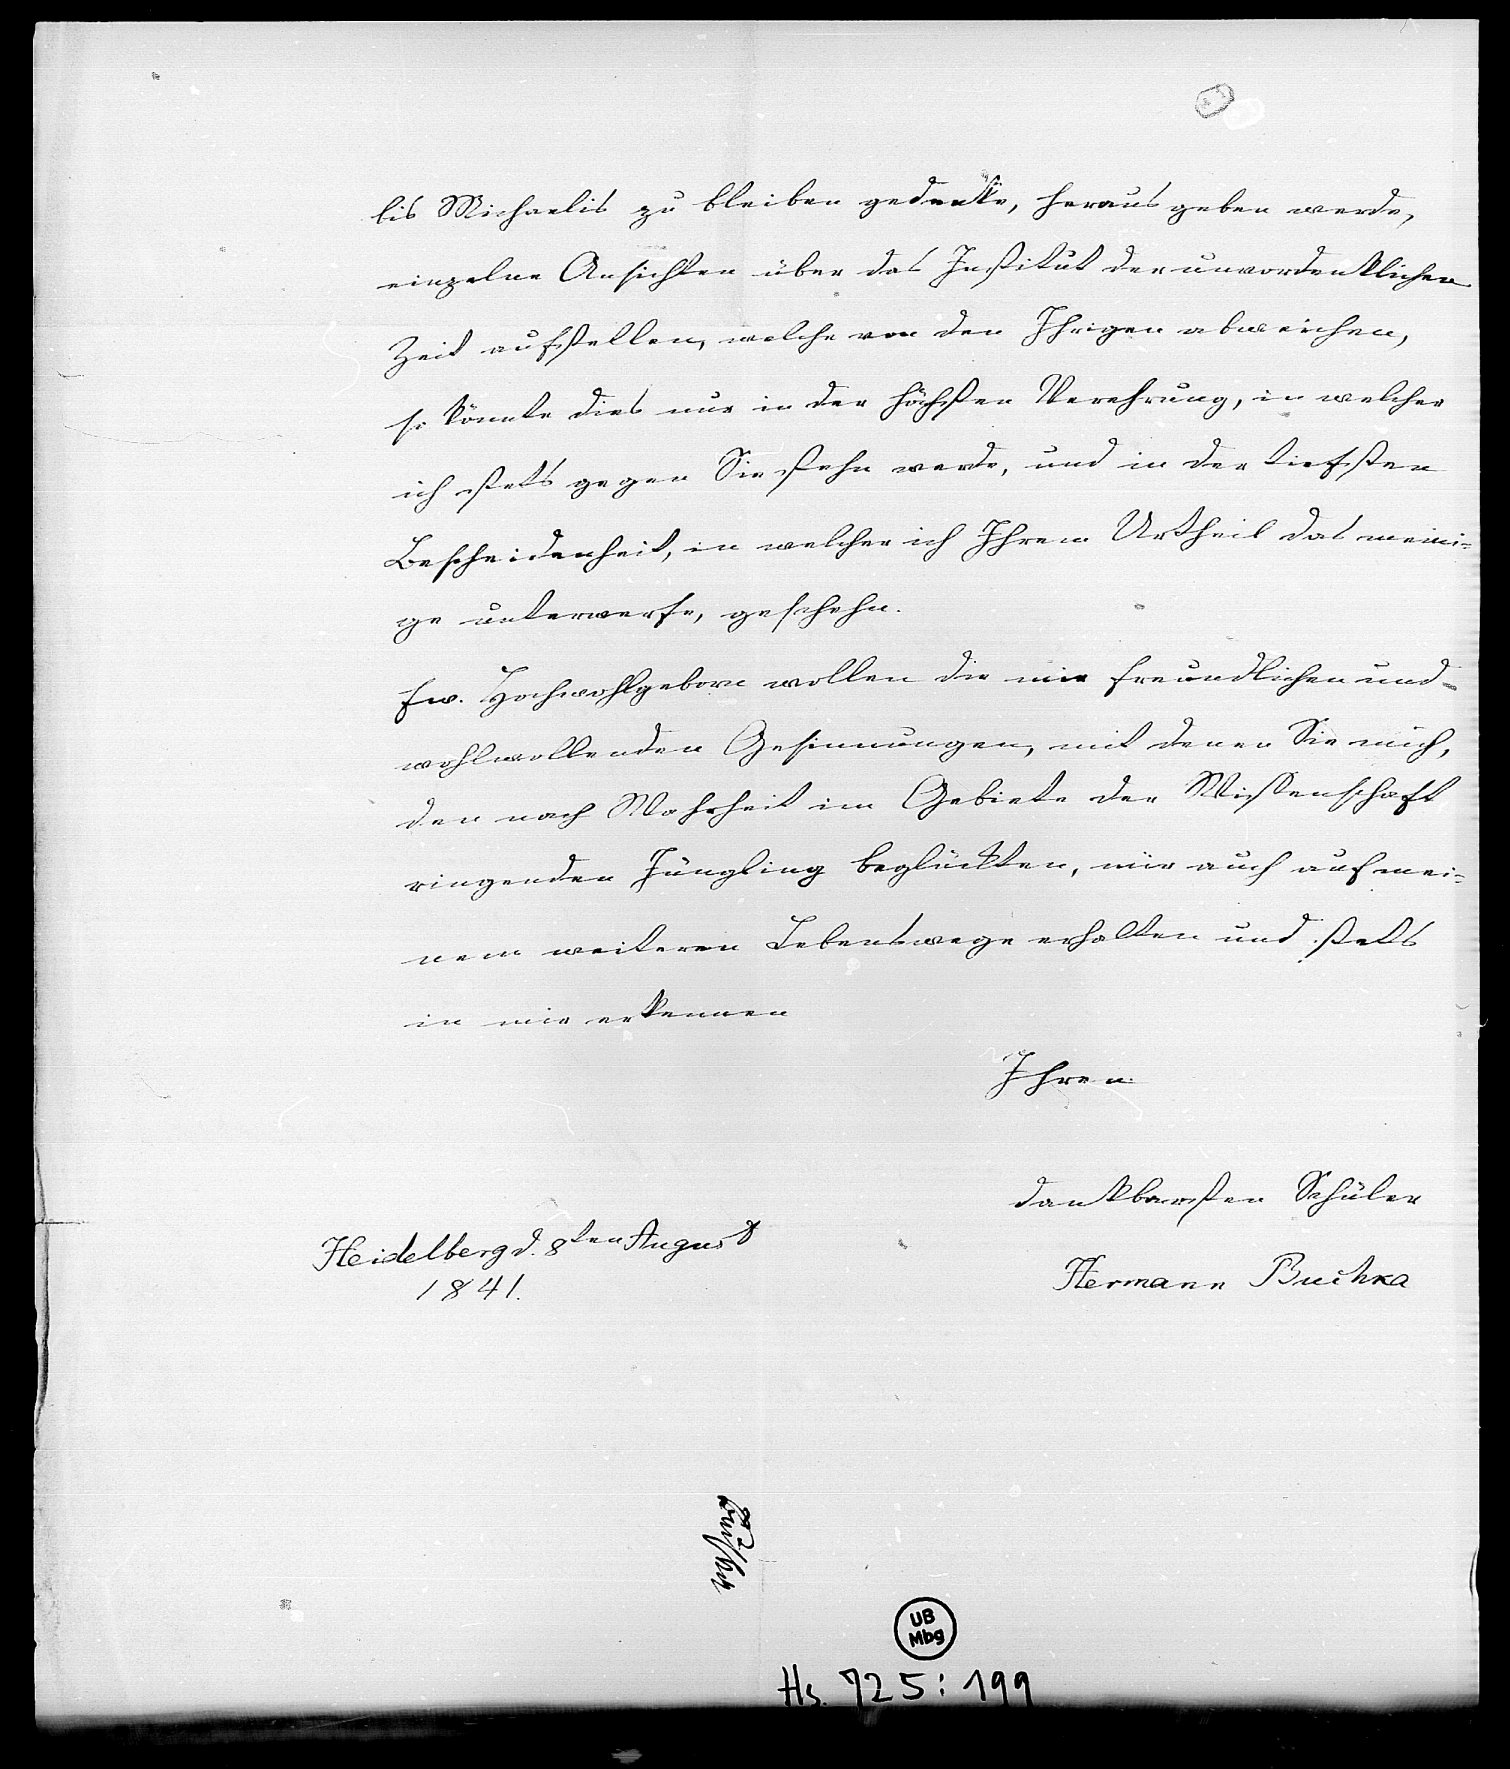 bis Michaelis zu bleiben gedenke, herausgeben werde,
einzelne Ansichten über das Institut der unvordenklichen
Zeit aufstellen, welche von den Ihrigen abweichen,
so könnte dies nur in der höchsten Verehrung, in welcher
ich stets gegen Sie stehn werde, und in der tiefsten
Bescheidenheit, in welcher ich Ihrem Urtheil das meini-
ge unterwerfe, geschehn.
Ew. Hochwohlgeborn wollen die mir freundlichen und
wohlwollenden Gesinnungen, mit denen Sie mich,
den nach Wahrheit im Gebiete der Wissenschaft
ringenden Jüngling beglückten, mir auch auf mei-
nem weiteren Lebenswege erhalten und stets
in mir erkennen
Ihren
dankbarsten Schüler
Heidelberg d. 8ten August
1841.
Hermann Buchka
UB
Mbg
Hs. 725:199